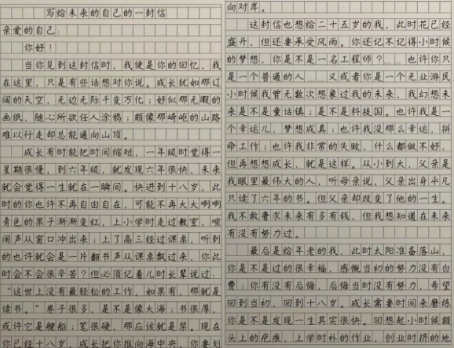 写给未来的自己的一封信
亲爱的自己:
你好!
当你见到这封信时,我便是你的回忆,我
在这里,只是有些话想对你说。成长就如那辽
阔的天空,无边无际千变万化;好似那无暇的
画纸,随心所欲任人涂鸦;颇像那崎岖的山路
难以行走却总能通向山顶。
成长有时能把时间缩短,一年级时觉得一
星期很慢,到六年级,就发现六年很快,未来
就会觉得一生就在一瞬间。快进到十八岁,此
时的你也许不再自由自在,可能不再大大咧咧
青色的果子渐渐变红,上小学时走过教室,喧
闹声从窗口冲出来;上了高三经过课室,听到
的也许就会是一片翻书声从课桌飘过来,你此
时会不会很辛苦?但必须记着儿时长辈说过
“这世上没有最轻松的工作,如果有,那就是
读书。”卷子很多,是不是像大海;书很厚,
或许它是艘船;笔很硬,那应该就是桨。现在
你已经十八岁,成长把你推向海中央,你要划
向对岸。
这封信也想给二十五岁的我,此时花已经
盛开,但还要承受风雨。你还记不记得小时候
的梦想,你是不是一名工程师?也许你只
是一个普通的人 又或者你是一个无业游民
小时候我曾无数次想象过我的未来,我幻想未
来是不是童话镇;是不是科技国。也许我是一
个幸运儿,梦想成真;也许我没那么幸运,拼
命工作;也许我非常的失败,什么都做不好,
但再想想成长,就是这样。从小到大,父亲是
我眼里最伟大的人,听母亲说,父亲出身平凡
只读了六年的书,但父亲却改变了他的一生。
我不敢奢求未来有多有钱,但我想知道在未来
有没有努力过。
最后是给年老的我,此时太阳准备落山,
你是不是过的很幸福,感慨当初的努力没有白
费;你有没有后悔,后悔当时没有努力,希望
回到当初,回到十八岁。成长需要时间来磨练
你是不是发现一生其实很快。回想起小时候额
头上的疤痕,上学时补的作业,创业时挤的地